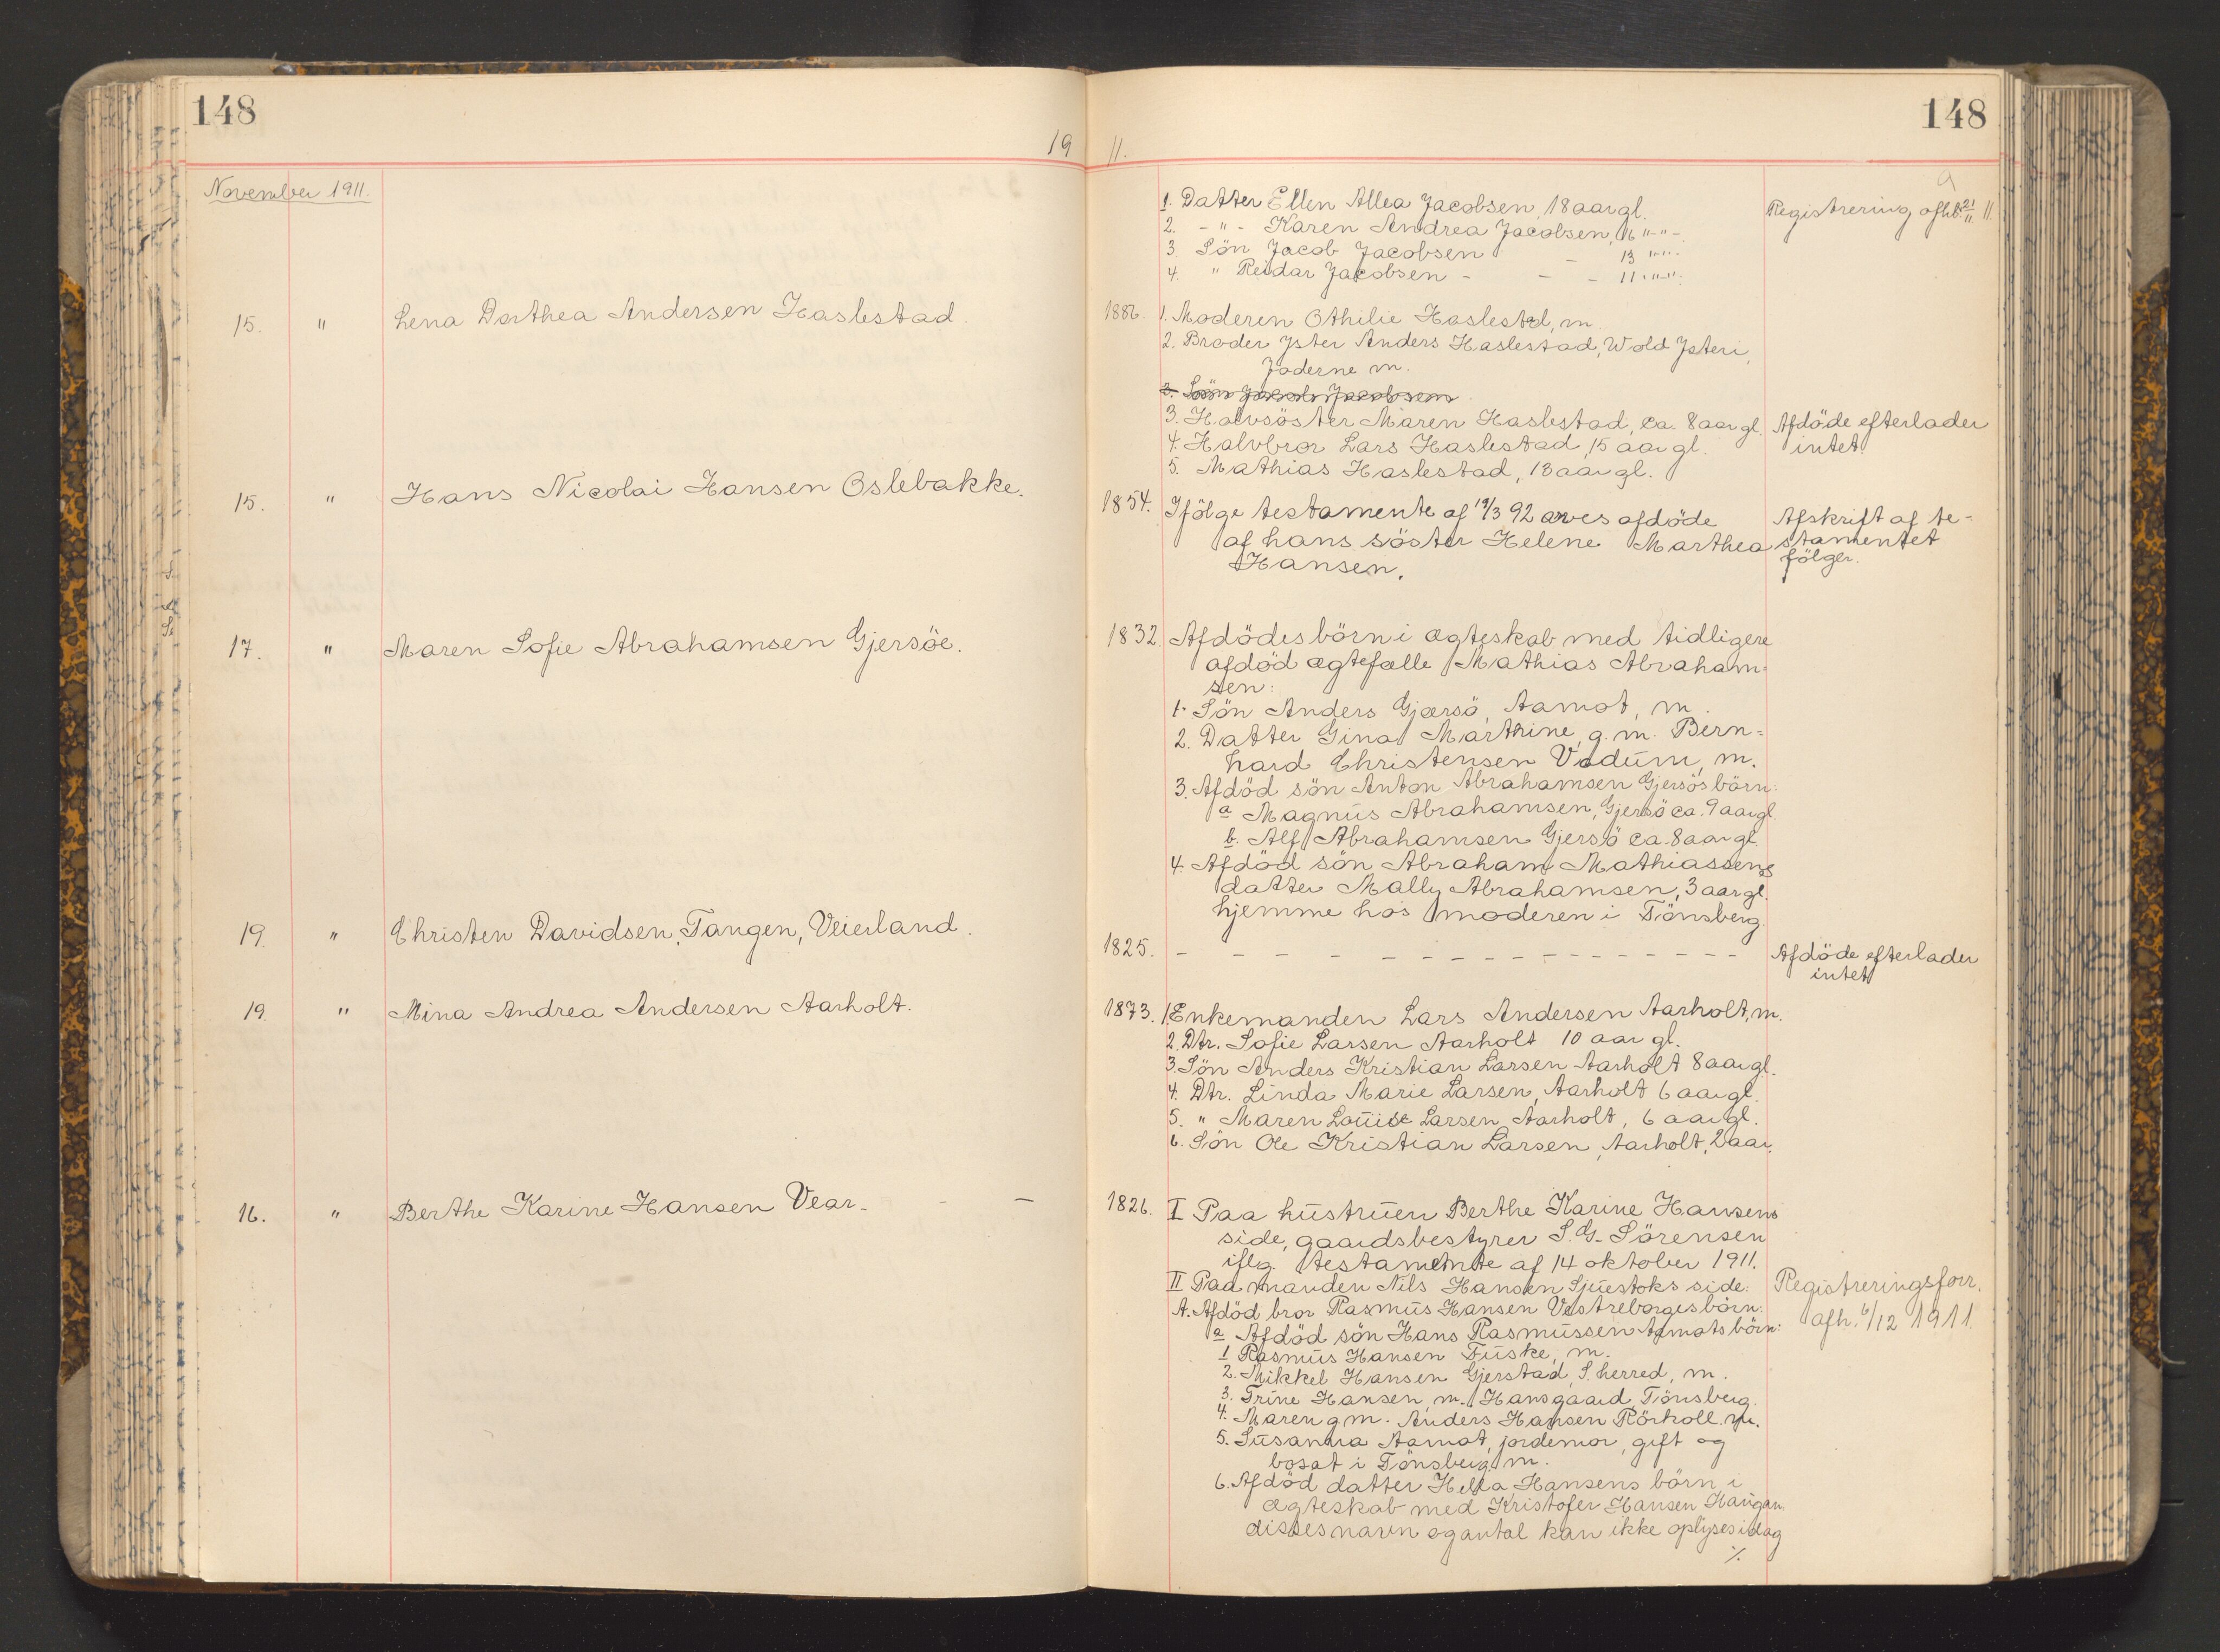 148
148
19 11.
November 1911.
1. Datter Ellen Allea Jacobsen, 18 aar gl.
Registrering afh. 21/11 11
2. - " - Karen Andrea Jacobsen, 16 " - " -
3. Sön Jacob Jacobsen - 13 " - " -
4. " Reidar Jacobsen - - - 11 " - " -
15. " Lena Dorthea Andersen Haslestad.
1886. 1. Moderen Othilie Haslestad, m.
2. Broder Yster Anders Haslestad, Wold Ysteri,
Jaderne m.
3. Sön Jacob Jacobsen
3. Halvsöster Maren Haslestad, ca. 8 aar gl.
Afdöde efterlader
4. Halvbror Lars Haslestad, 15 aar gl.
intet.
5. Mathias Haslestad, 13 aar gl.
15. " Hans Nicolai Hansen Oslebakke.
1854. Ifölge testamente af 19/3 92 arves afdöde
Afskrift af te-
af hans söster Helene Marthea
stamentet
Hansen.
fölger.
17. " Maren Sofie Abrahamsen Gjersöe.
1832. Afdödes börn i ægteskab med tidligere
afdöd ægtefælle Mathias Abraham-
sen:
1. Sön Anders Gjærsö, Aamot, m.
2. Datter Gina Marthine, g. m. Bern-
hard Christensen Vadum, m.
3. Afdöd sön Anton Abrahamsen Gjersös börn:
a Magnus Abrahamsen, Gjersö ca. 9 aar gl.
b. Alf Abrahamsen Gjersö ca. 8 aar gl.
4. Afdöd sön Abraham Mathiassens
datter Mally Abrahamsen, 3 aar gl.
hjemme hos moderen i Tönsberg.
19. " Christen Davidsen, Tangen, Veierland.
1825. - - - - - - - - - - - - - - - -
Afdöde efterlader
intet
19. " Mina Andrea Andersen Aarholt.
1873. 1. Enkemanden Lars Andersen Aarholt, m.
2. Dtr. Sofie Larsen Aarholt 10 aar gl.
3. Sön Anders Kristian Larsen Aarholt 8 aar gl.
4. Dtr. Linda Marie Larsen, Aarholt 6 aar gl.
5. " Maren Louise Larsen Aarholt, 6 aar gl.
6. Sön Ole Kristian Larsen, Aarholt, 2 aar.
16. " Berthe Karine Hansen Vear. - -
1826. I Paa hustruen Berthe Karine Hansens
side, gaardsbestyrer S. G. Sörensen
iflg. testamente af 14 oktober 1911.
II Paa manden Nils Hansen Sjuestoks side:
Registreringsforr.
A. Afdöd bror Rasmus Hansen Vestreborges börn:
afh. 6/12 1911.
a Afdöd sön Hans Rasmussen Aamots börn:
1 Rasmus Hansen Fuske, m.
2. Mikkel Hansen Gjerstad, S. herred, m.
3. Trine Hansen, m. Hansgaard, Tönsberg.
4. Maren g m. Anders Hansen Rörkoll. m.
5. Susanna Aamot, jordemor, gift og
bosat i Tönsberg, m.
6. Afdöd datter Helka Hansens börn i
ægteskab med Kristofer Hansen Haugan.
disses navn og antal kan ikke oplyses idag
./.